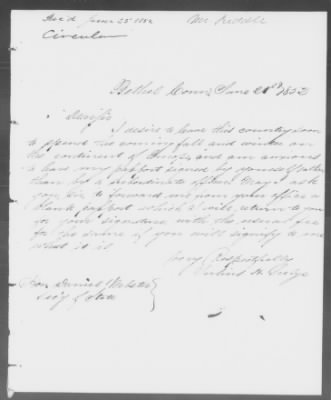 Rec'd June 25 1852
Mr Riddle
Circular
Bethel Conn June 21st 1852
Dear Sir
I desire to leave this country soon
to spend the coming fall and winter on
the continent of Europe and am anxious
to have my passport signed by yourself rather
than by a subordinate officer May I ask
you Sir to forward me from your office a
blank passport which I will return to you
for your signature with the usual fee
for the same if you will signify to me
what it is
Very Respectfully
Hon Daniel Webster
Secy of State